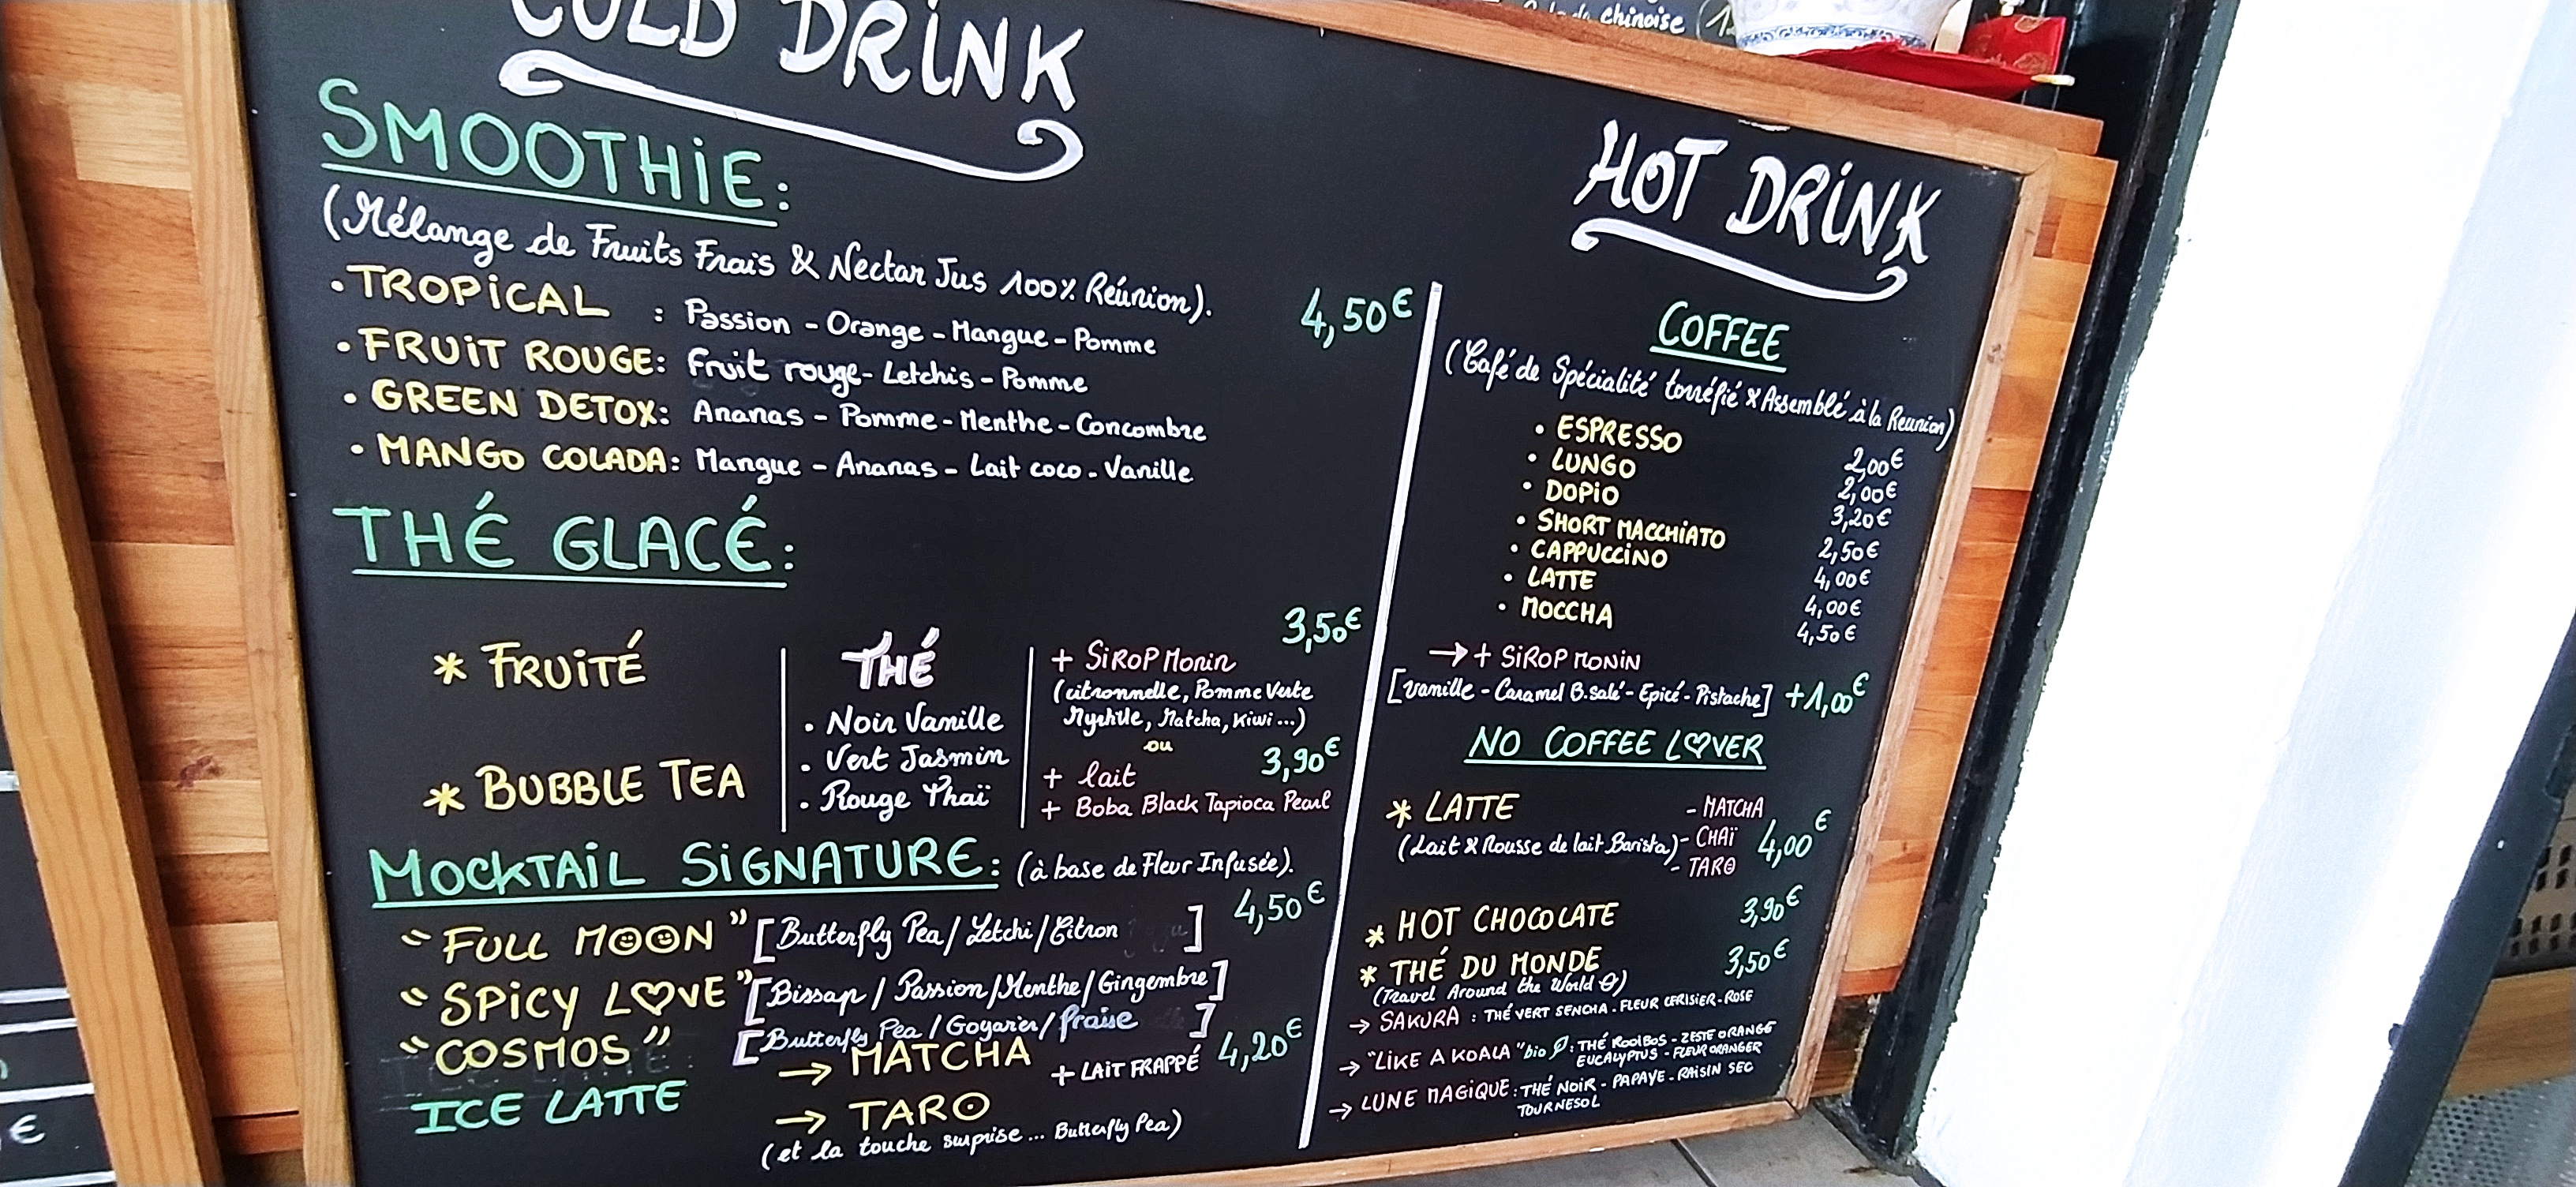 COLD DRINK
SMOOTHIE:
(Mélange de Fruits Frais & Nectar Jus 100% Réunion).
4,50€
• TROPICAL : Passion - Orange - Mangue - Pomme
• FRUIT ROUGE: Fruit rouge - Letchis - Pomme
• GREEN DETOX: Ananas - Pomme - Menthe - Concombre
• MANGO COLADA: Mangue - Ananas - Lait coco - Vanille
THÉ GLACÉ:
* FRUITÉ
* BUBBLE TEA
THÉ
• Noir Vanille
• Vert Jasmin
• Rouge Thaï
3,50€
+ SIROP Monin
(citronnelle, Pomme Verte
Myrtille, Matcha, Kiwi ...)
ou
3,90€
+ lait
+ Boba Black Tapioca Pearl
MOCKTAIL SIGNATURE: (à base de Fleur Infusée).
4,50€
"FULL MOON" [Butterfly Pea / Letchi / Citron ]
"SPICY LOVE" [Bissap / Passion / Menthe / Gingembre]
"COSMOS" [Butterfly Pea / Goyavier / fraise ]
ICE LATTE → MATCHA + LAIT FRAPPÉ 4,20€
→ TARO
(et la touche surprise ... Butterfly Pea)
HOT DRINK
COFFEE
(Café de Spécialité torréfié & Assemblé à la Reunion)
• ESPRESSO 2,00€
• LUNGO 2,00€
• DOPIO 3,20€
• SHORT MACCHIATO 2,50€
• CAPPUCCINO 4,00€
• LATTE 4,00€
• MOCCHA 4,50€
→ + SIROP MONIN
[Vanille - Caramel B.salé - Epicé - Pistache] +1,00€
NO COFFEE LOVER
* LATTE - MATCHA
(Lait & Mousse de lait Barista) - CHAÏ 4,00€
- TARO
* HOT CHOCOLATE 3,90€
* THÉ DU MONDE 3,50€
(Travel Around the World)
→ SAKURA : THÉ VERT SENCHA - FLEUR CERISIER - ROSE
→ "LIKE A KOALA" bio : THÉ ROOIBOS - ZESTE ORANGE
EUCALYPTUS - FLEUR ORANGER
→ LUNE MAGIQUE : THÉ NOIR - PAPAYE - RAISIN SEC
TOURNESOL
chinoise
€